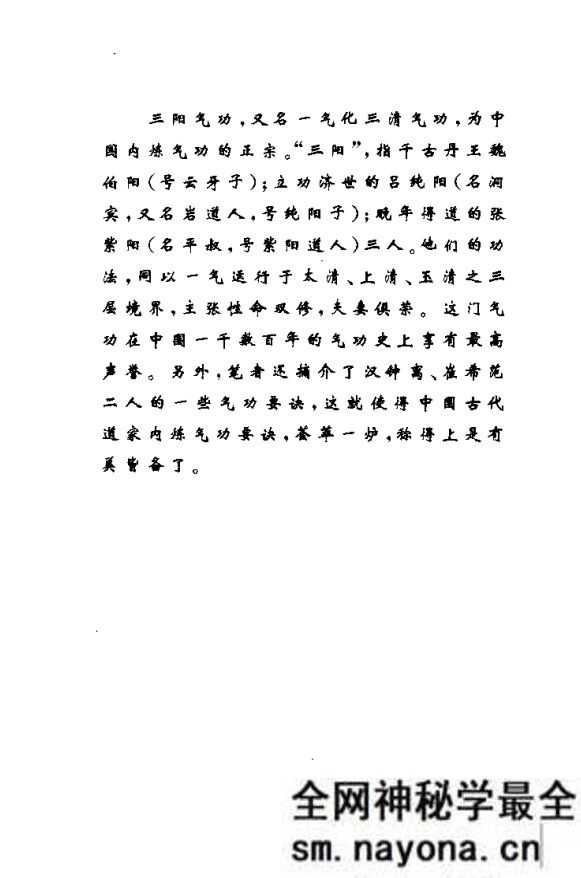 三阳气功，又名一气化三清气功，为中
国内炼气功的正宗。“三阳”，指千古丹王魏
伯阳（号云牙子）；立功济世的吕纯阳（名洞
宾，又名岩道人，号纯阳子）；晚年得道的张
紫阳（名平叔，号紫阳道人）三人。他们的功
法，同以一气运行于太清、上清、玉清之三
层境界，主张性命双修，夫妻俱荣。这门气
功在中国一千数百年的气功史上享有最高
声誉。另外，笔者还摘介了汉钟离、崔希范
二人的一些气功要诀，这就使得中国古代
道家内炼气功要诀，荟萃一炉，称得上是有
美皆备了。
全网神秘学最全
sm.nayona.cn